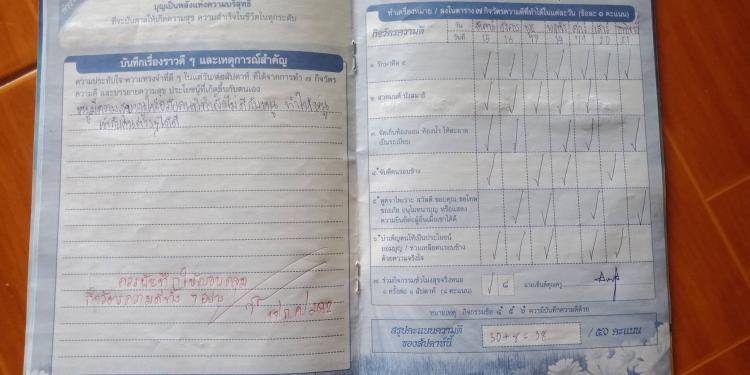 บุญเป็นพลังแห่งความบริสุทธิ์
ที่จะบันดาลให้เกิดความสุข ความสำเร็จในชีวิตในทุกระดับ
บันทึกเรื่องราวดี ๆ และเหตุการณ์สำคัญ
ความประทับใจ ความทรงจำที่ดี ๆ ในแต่วัน/ต่อสัปดาห์ ที่ได้จากการทำ ๗ กิจวัตร
ความดี และบรรยายความสุข ประโยชน์ที่เกิดขึ้นกับตนเอง
หนูมีความสุข ทำให้หนู
ควรบันทึกให้ครอบคลุม
กิจวัตรความดีทั้ง 7 อย่าง
ทำเครื่องหมาย / ลงในตาราง ๗ กิจวัตรความดีที่ทำได้ในแต่ละวัน (ข้อละ ๑ คะแนน)
กิจวัตรความดี
วัน จันทร์ อังคาร พุธ พฤหัส ศุกร์ เสาร์ อาทิตย์
วันที่ 15 16 17 18 19 20 21
๑. รักษาศีล ๕
๒. สวดมนต์ นั่งสมาธิ
๓. จัดเก็บห้องนอน ห้องน้ำ ให้สะอาด
เป็นระเบียบ
๔. จับดีคนรอบข้าง
๕. พูดจาไพเราะ สวัสดี ขอบคุณ ขอโทษ
ขออภัย อนุโมทนาบุญ หรือแสดง
ความยินดีต่อผู้อื่นเมื่อเขาได้ดี
๖. บำเพ็ญตนให้เป็นประโยชน์
ออมบุญ / ช่วยเหลือคนรอบข้าง
ด้วยความจริงใจ
๗. ร่วมกิจกรรมชั่วโมงสุขจริงหนอ
๑ ครั้งต่อ ๑ สัปดาห์ (๘ คะแนน) / ๘ ลายเซ็นต์คุณครู
หมายเหตุ : กิจกรรมข้อ ๔ ๕ ๖ ควรบันทึกความดีด้วย
สรุปคะแนนความดี
ของสัปดาห์นี้ 30+8 = 38 / ๕๐ คะแนน